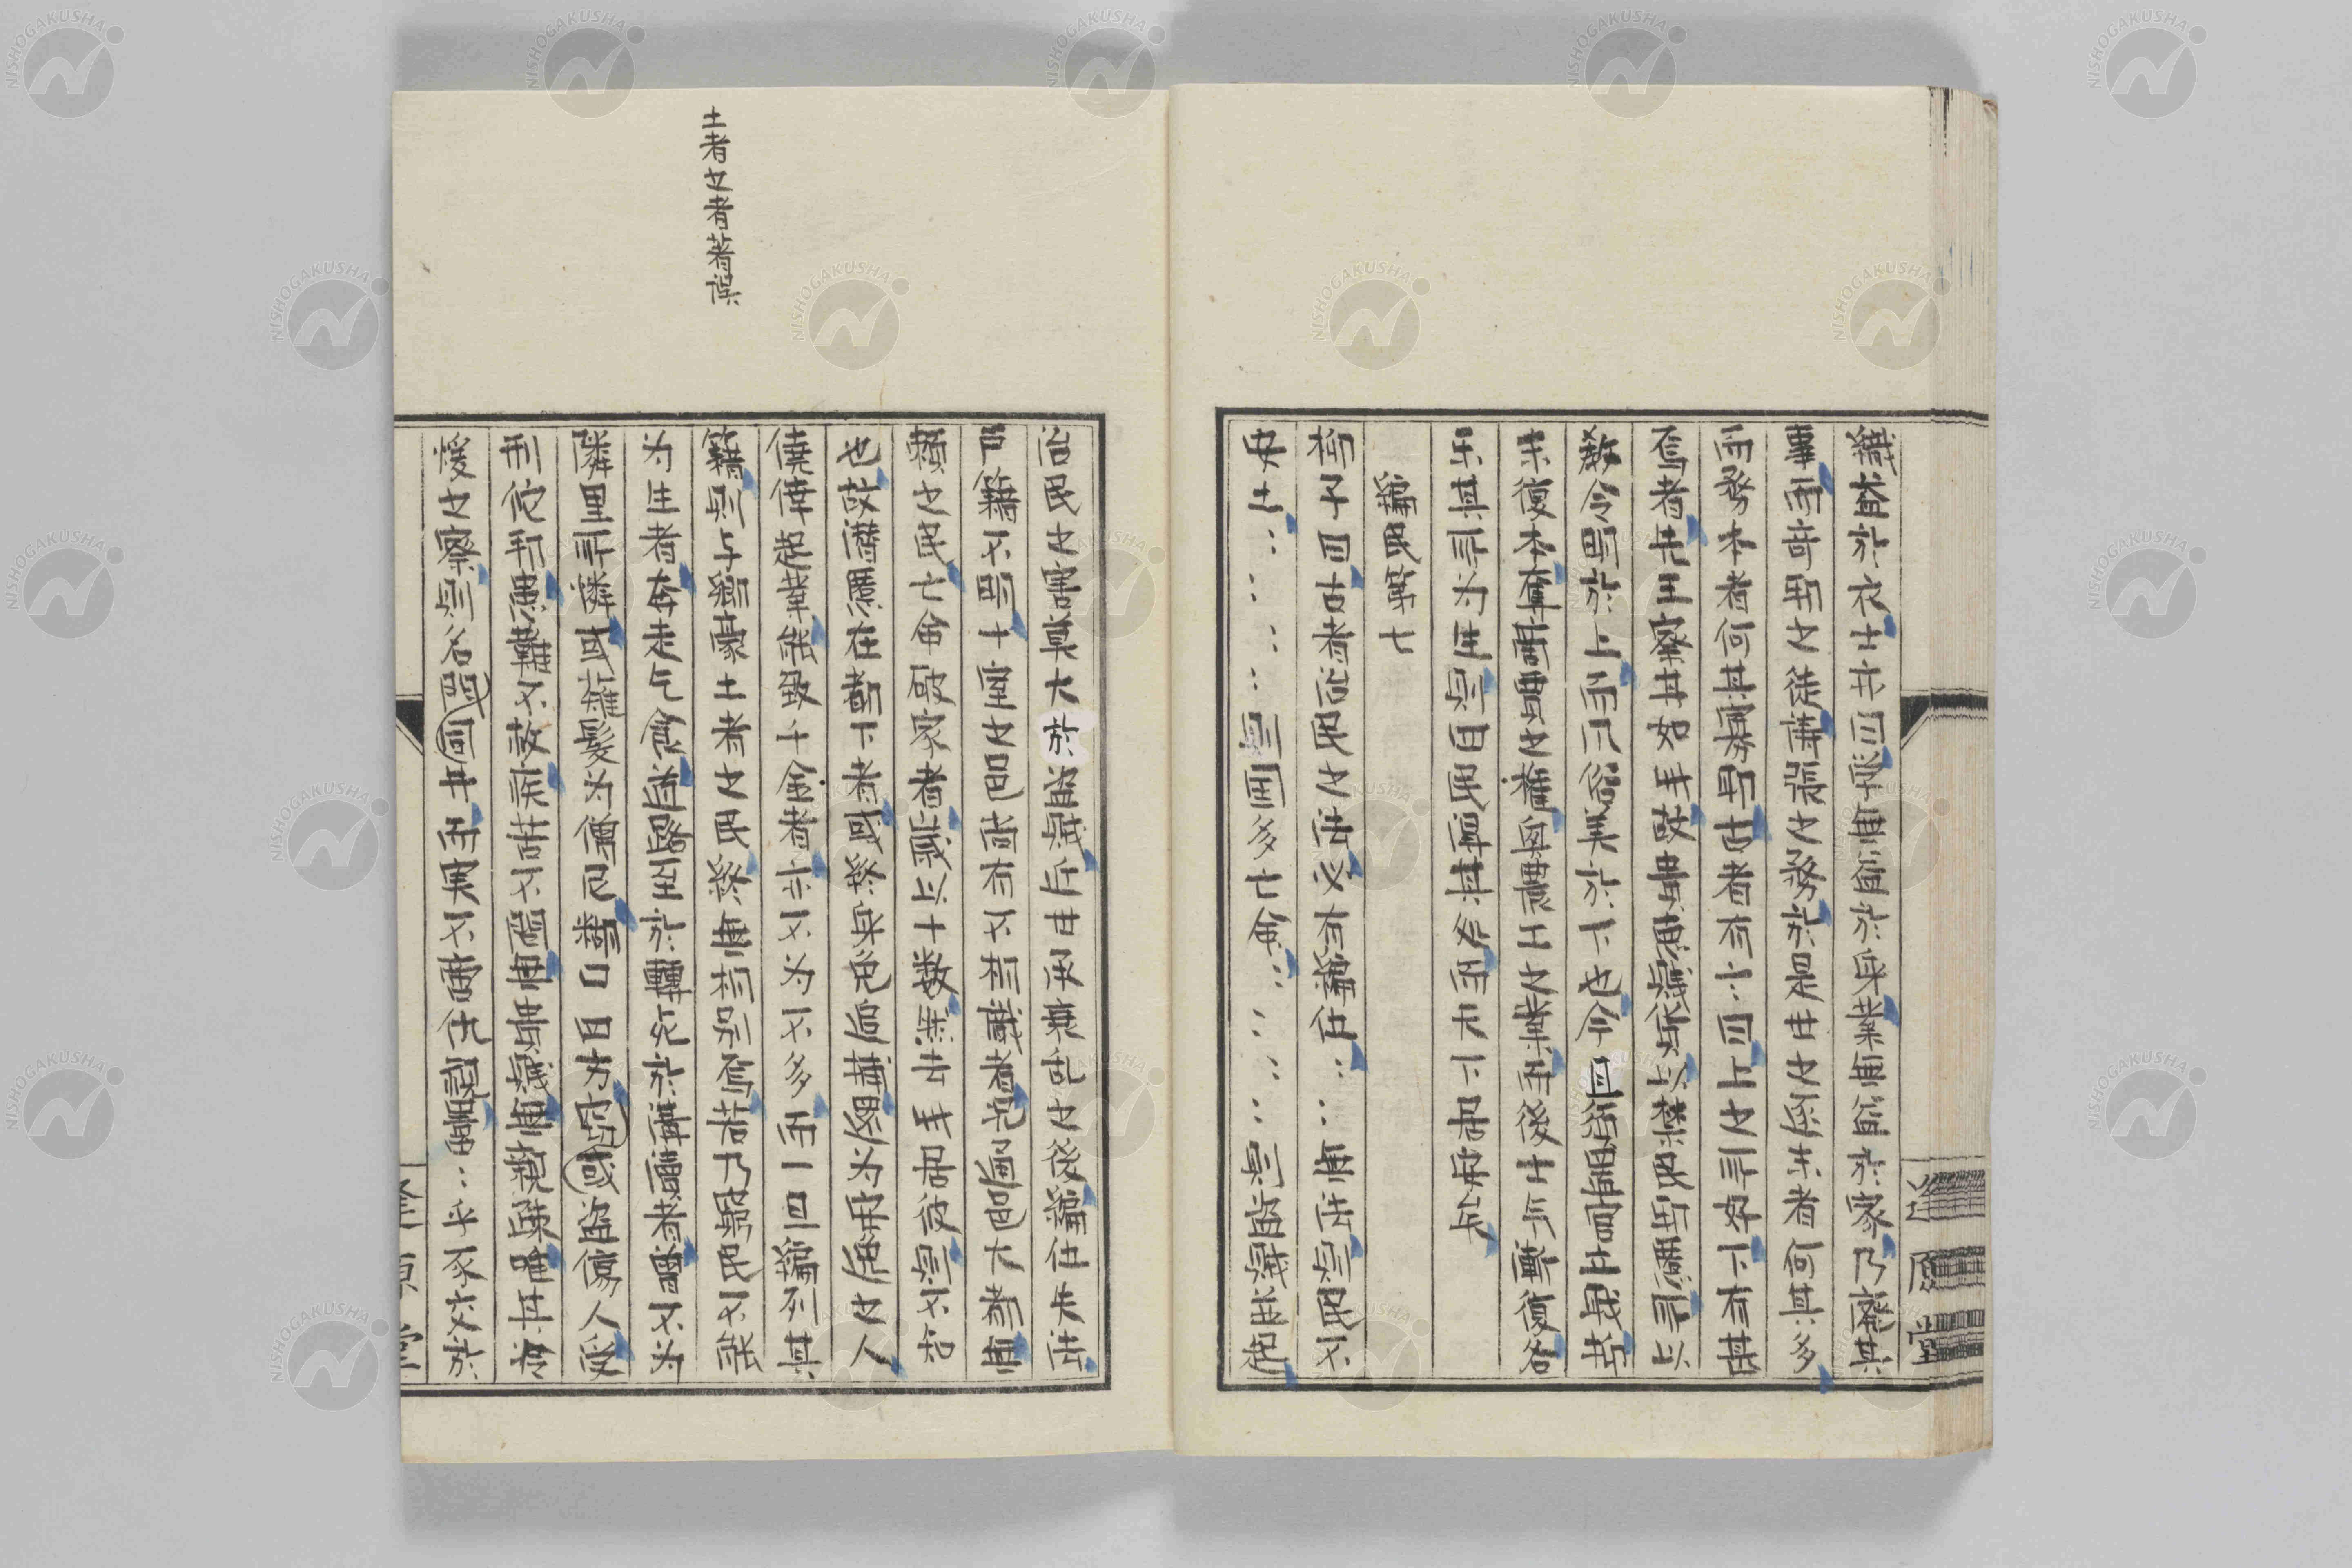 織益於衣士亦曰学無益於身業無益於家乃廃其
事而奇邪之徒講張之務於是世之逐末者何其多
而務本者何其寡 者有 曰上之所好下有甚
焉者 察其如此故貴 賤 以禁民 所以
教令明於上而風俗美於下也今且 官士
末復本奪商賈之権与農工之業而後士与 復各
楽其所为生則四民得其処而天下居安矣
編民第七
柳子曰古者治民之法必有編伍‥‥無法則民不
安土‥‥‥‥則国多亡命‥‥‥‥則盗賊並起
土者之者著誤
治民之害莫大於盗賊近世承衰乱之後編伍失法
戸籍不明十室之邑尚有不相識者況通邑大都無
頼之民亡命破家者歳以十数然去此居彼則不知
也故潜匿在都下者或終身免追捕還为安逸之人
僥倖起業能致千金者亦不为不多而一旦編列其
籍則与郷豪土者之民終無相別焉若乃窮民不能
为生者奔走乞食道路至於轉死於溝瀆者曽不为
隣里所憐或薙髪为僧尼糊口四方窃或盗傷人受
刑他邦患難不救疾苦不問無貴賤無親疎唯其冷
煖之察則名閭同井而実不啻仇讎‥乎豕交於